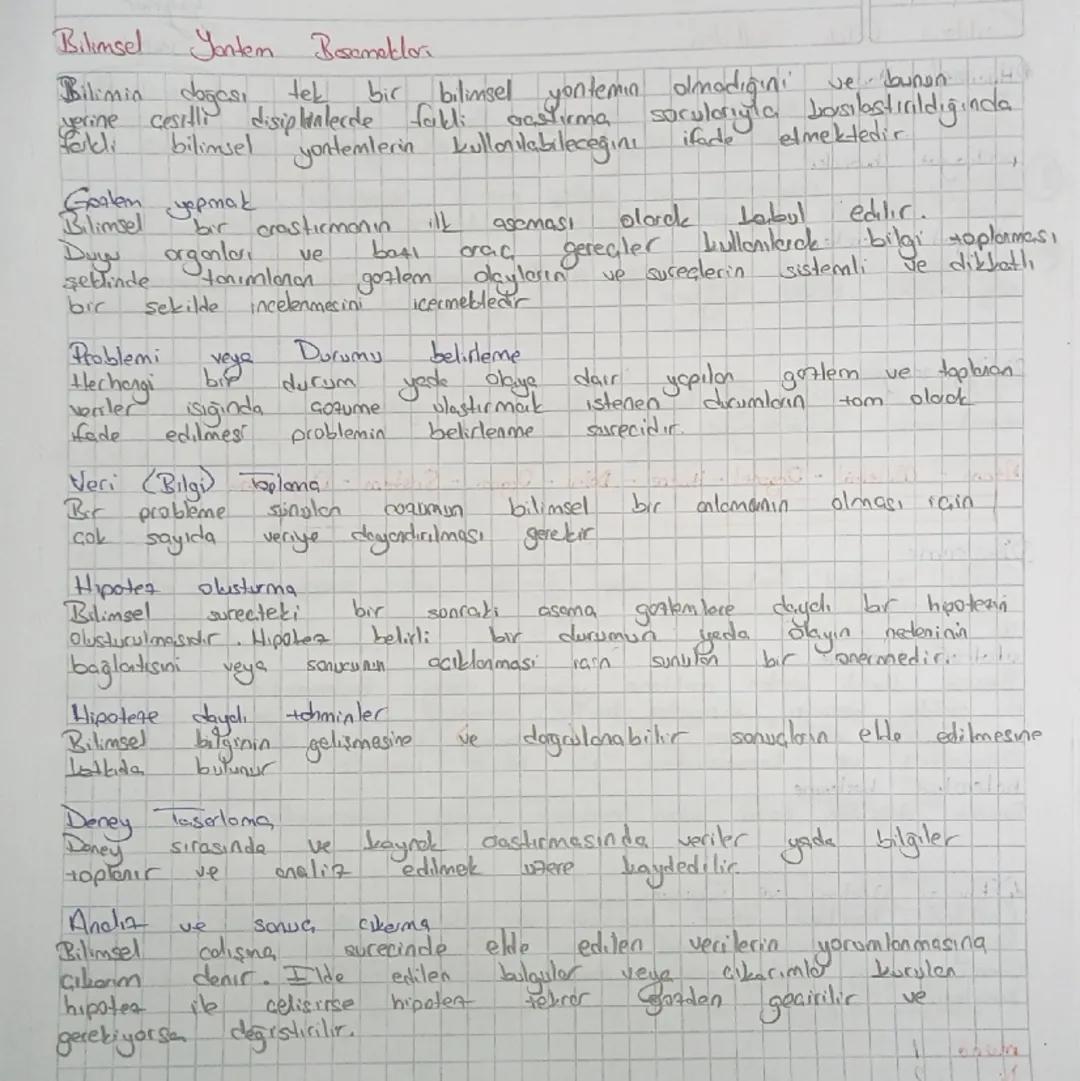 Bilimsel Yontem Basamakları
Bilimin dogası tek bir bilimsel yontemin olmadığını ve bunun
yerine cesitli disiplinlerde farkli arastırma sorularıyla karsılastırıldığında
farkli bilimsel yontemlerin kullanılabileceğini ifade etmektedir
Gozlem yapmak
Bilimsel bir arastırmanın ilk asaması olarak kabul edilir.
Duyu organları ve bazı arac gerecler kullanılarak bilgi toplanması
seklinde tanımlanan gozlem olayların ve sureclerin sistemli ve dikkatli
bir sekilde incelenmesini icermektedir
Problemi veya Durumu belirleme
Herhangi bir durum yada olaya dair yapılan gozlem ve toplanan
veriler isığında cozume ulastırmak istenen durumların tam olarak
ifade edilmesi problemin belirlenme surecidir.
Veri (Bilgi) Toplama
Bir probleme sunulan cozumun bilimsel bir anlamının olması icin
cok sayıda veriye dayandırılması gerekir
Hipotez olusturma
Bilimsel surecteki bir sonraki asama gozlemlere dayalı bir hipotezin
olusturulmasıdır. Hipotez belirli bir durumun yada olayın nedeninin
bağlantısini veya sonucunun acıklanması icin sunulan bir onermedir.
Hipoteze dayalı tahminler
Bilimsel bilginin gelişmesine ve dogrulanabilir sonucların elde edilmesine
katkıda bulunur
Deney Tasarlama
Deney sırasında ve kaynak arastırmasında veriler yada bilgiler
toplanır ve analiz edilmek uzere kaydedilir.
Analiz ve sonuc cıkarma
Bilimsel calışma surecinde elde edilen verilerin yorumlanmasına
cıkarım denir. Elde edilen bulgular veya cıkarımlar kurulan
hipotez ile celisirse hipotez tekrar gozden gecirilir ve
gerekiyorsa değistirilir.